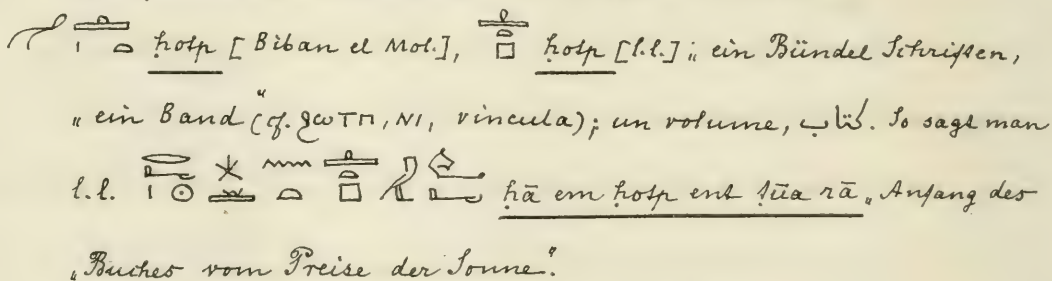 ḥotp [Biban el Mol.], ḥotp [l.l.]; ein Bündel Schriften,
„ein Band" (cf. ϩωτπ, ⲛⲓ, vincula); un volume, كتاب. So sagt man
l.l. ḥā em ḥotp ent ṭūa rā „Anfang des
„Buches vom Preise der Sonne".